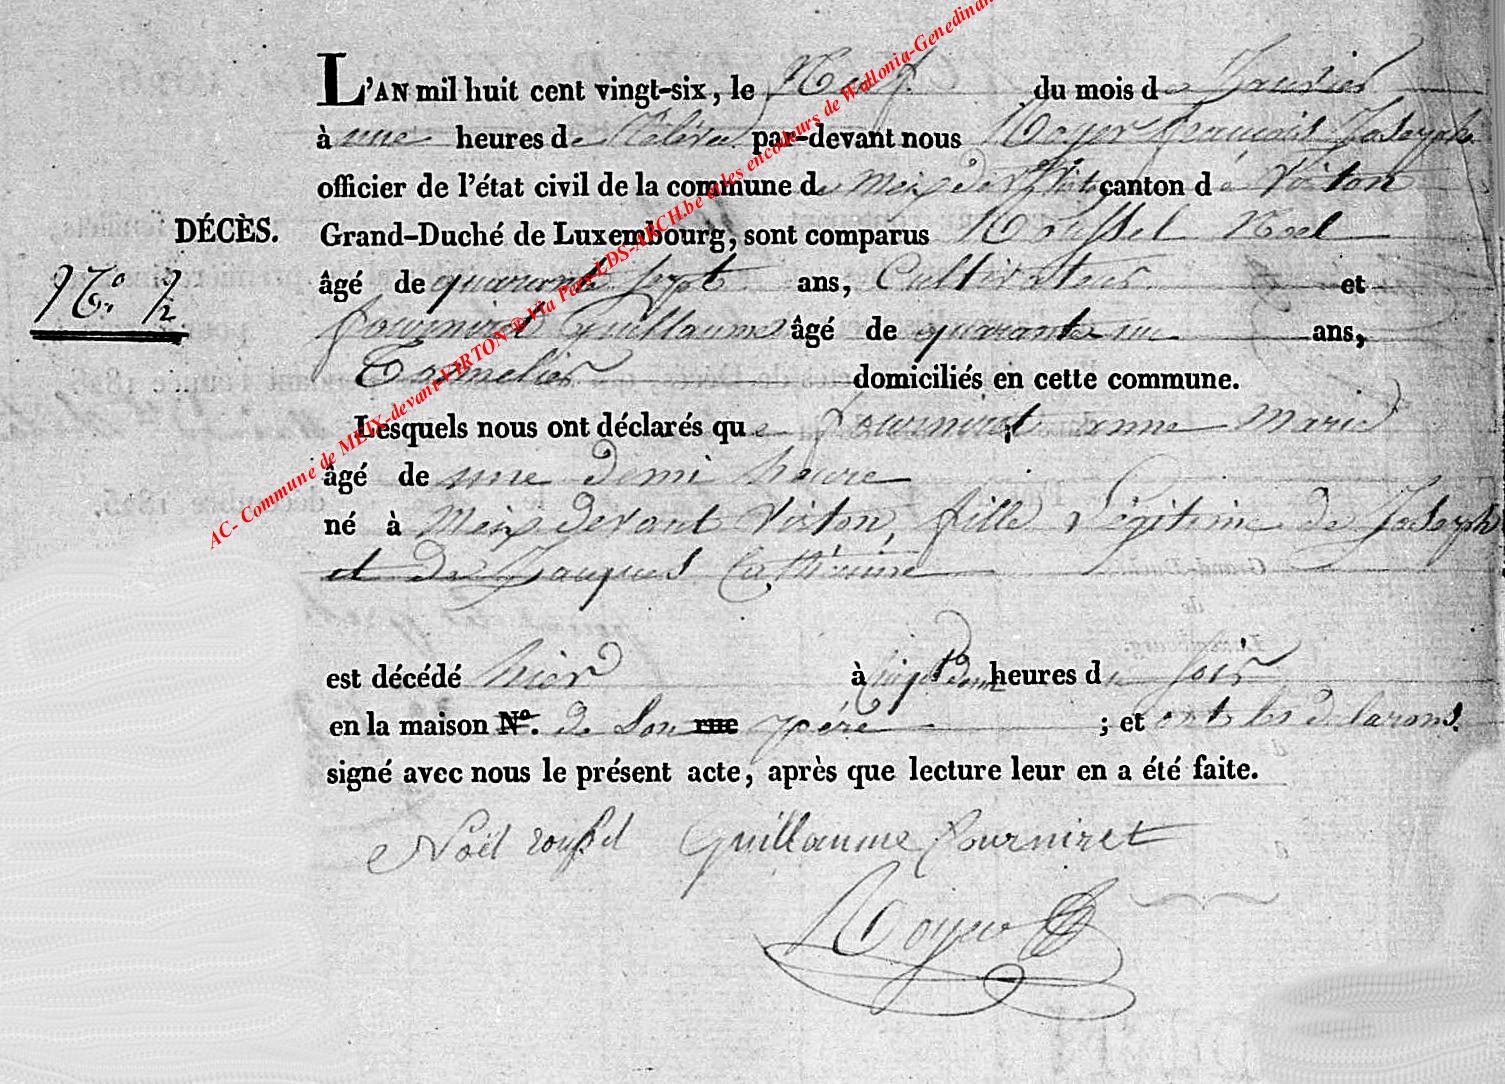 L'AN mil huit cent vingt-six, le Neuf du mois de Janvier
à une heures de Relévée par-devant nous Royer françois Joseph
officier de l'état civil de la commune de Meix devt Virton canton de Virton
DÉCÈS.
Grand-Duché de Luxembourg, sont comparus Roussel Noel
No. 2
âgé de quarante sept ans, Cultivateur et
fourniret Guillaume âgé de quarante un ans,
Tonnelier domiciliés en cette commune.
Lesquels nous ont déclarés que fourniret anne Marie
âgé de une demi heure
né à Meix devant Virton, fille Légitime de Joseph
et de Jaques Catherine
est décédé hier à heures du soir
en la maison No. de Son rue père ; et ont les dclarans
signé avec nous le présent acte, après que lecture leur en a été faite.
Noël roussel Guillaume fourniret
Royer
AC- Commune de MEIX-devant-VIRTON ® Via Pers-LDS-ARCH.be et les encodeurs de Wallonia-Genedinan